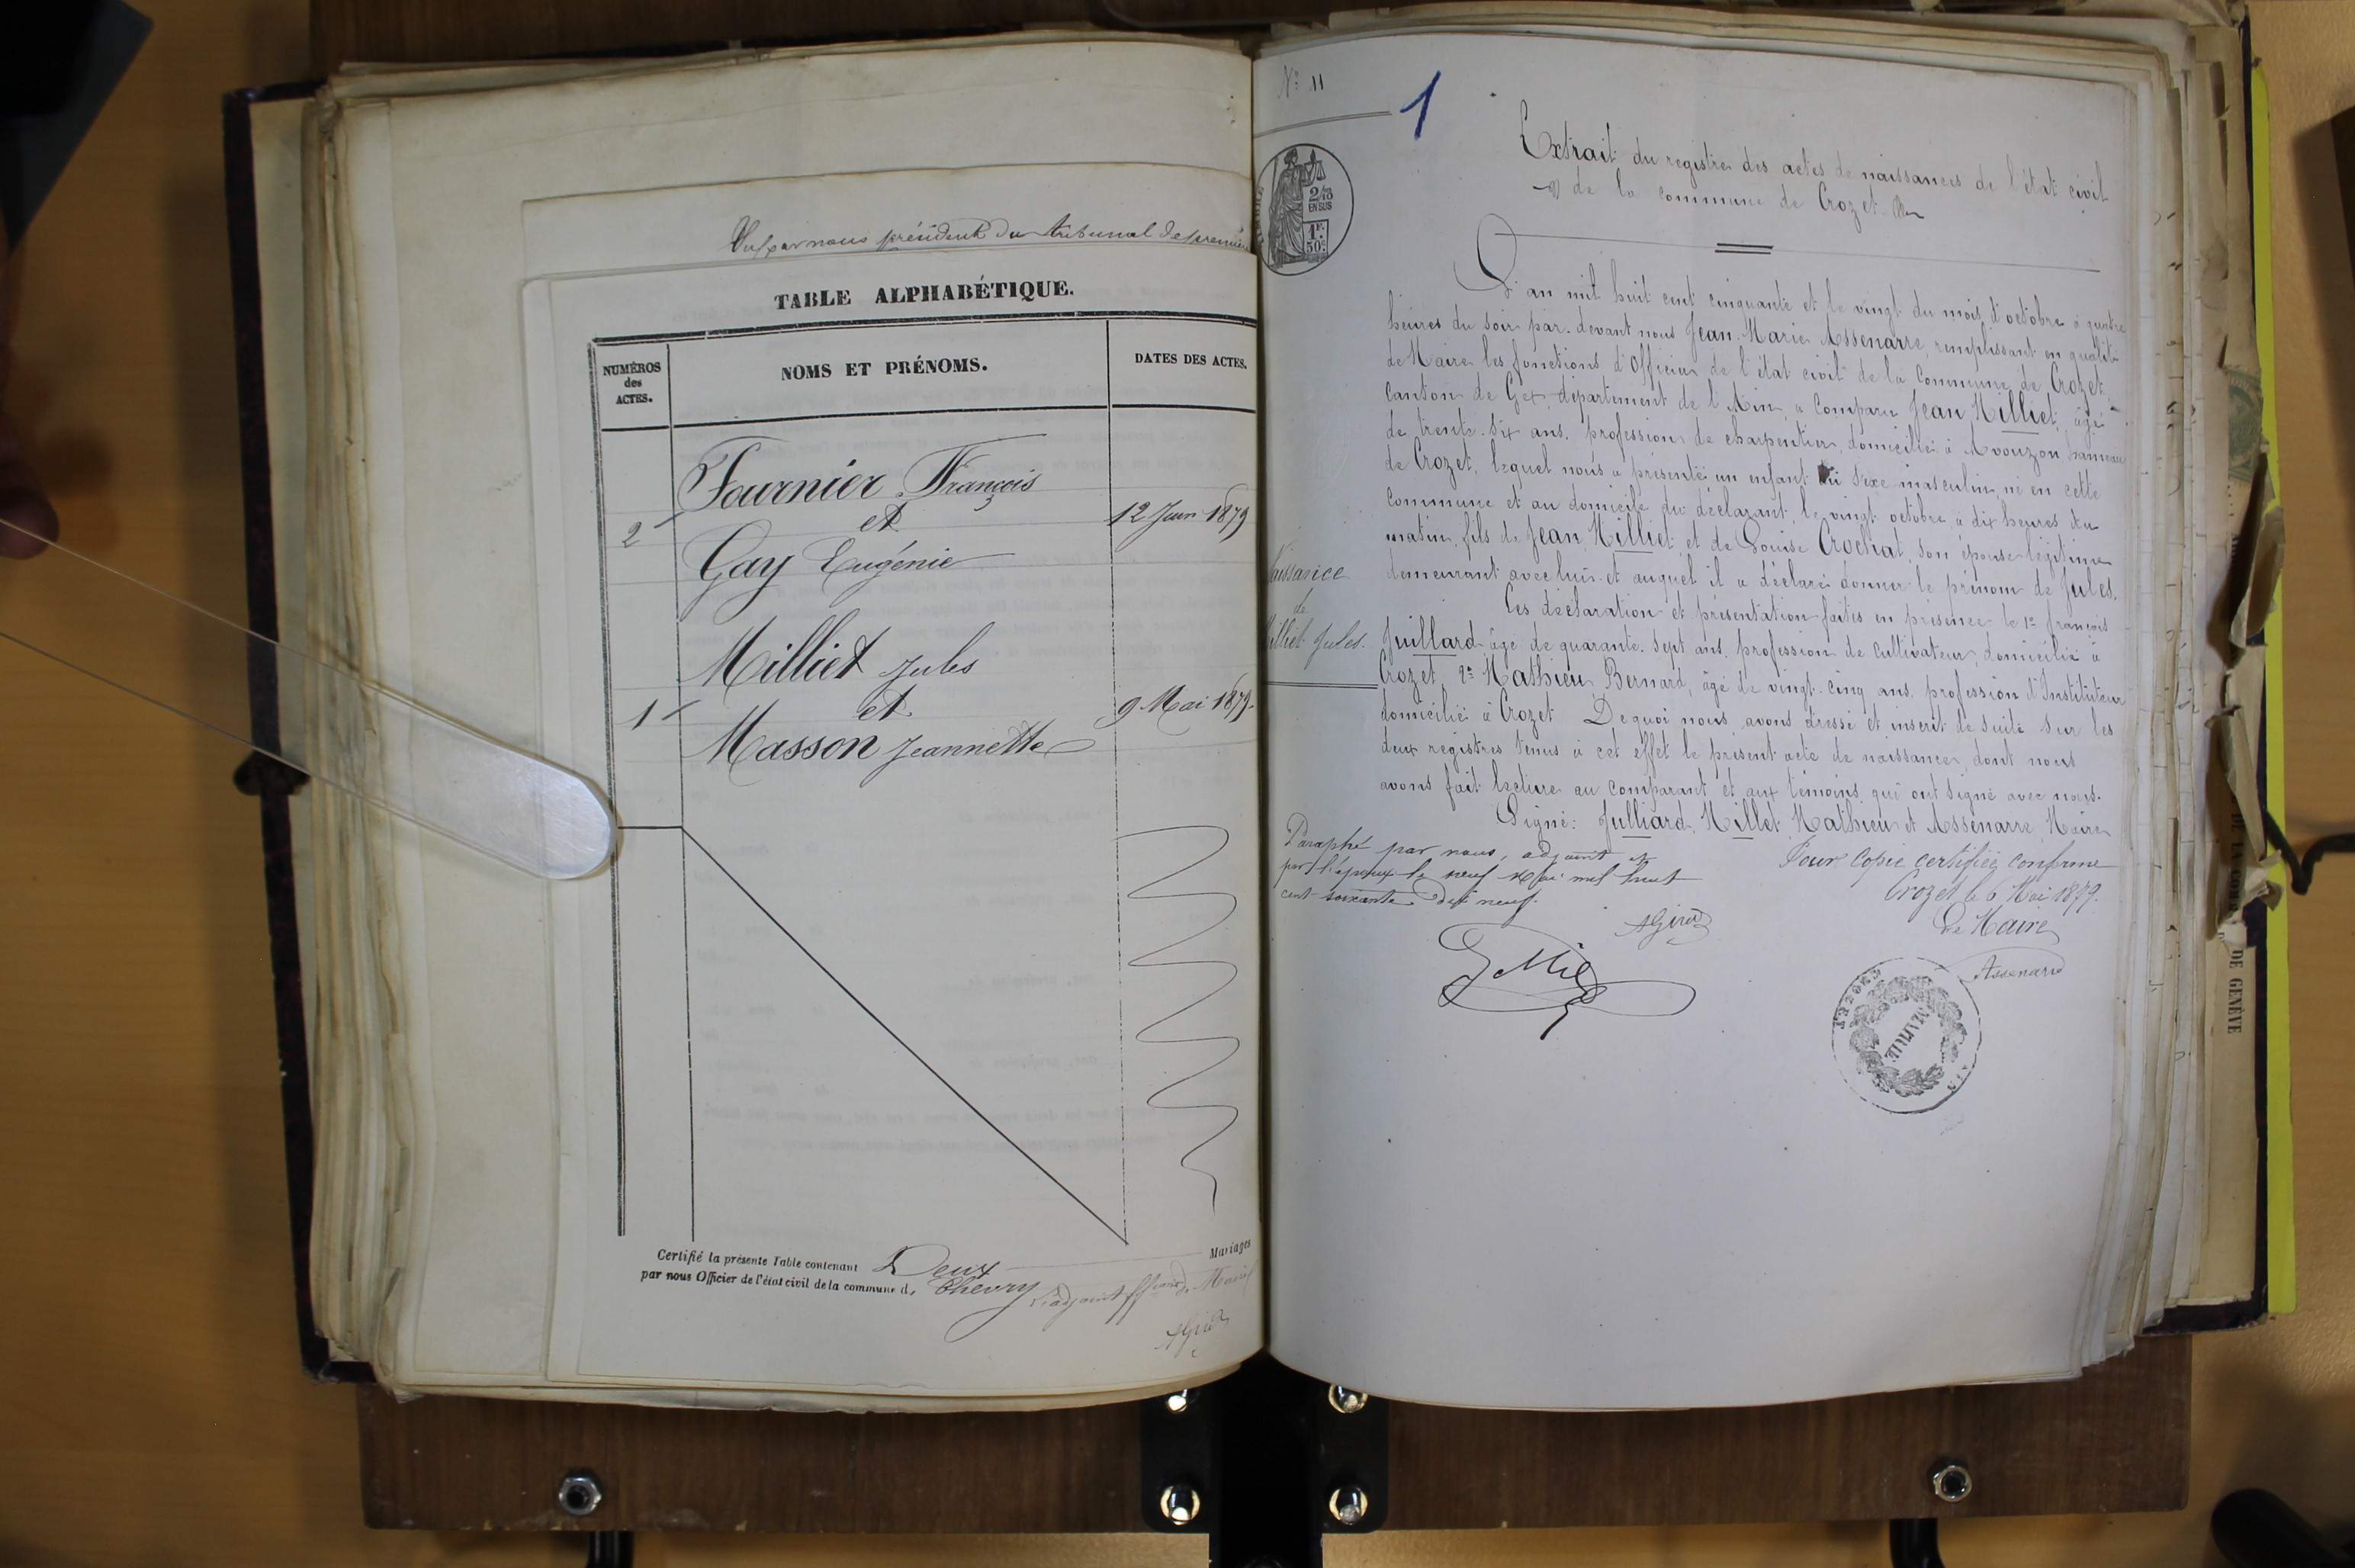 Vu par nous président du tribunal de première
TABLE ALPHABÉTIQUE.
NUMÉROS des ACTES.
NOMS ET PRÉNOMS.
DATES DES ACTES.
Fournier François
et
2
12 Juin 1879
Gay Eugénie
Milliet Jules
et
1
9 Mai 1879.
Masson Jeannette
Certifié la présente Table contenant Deux Mariages
par nous Officier de l'état civil de la commune de Chevry L'adjoint ffons de Maire
AGirod
N° 11
1
2/10
EN SUS
1F.
50c.
Extrait du registre des actes de naissances de l'état civil
de la commune de Crozet
L'an mil huit cent cinquante et le vingt du mois d'octobre à quatre
heures du soir par-devant nous Jean-Marie Assenarre, remplissant en qualité
de Maire les fonctions d'Officier de l'état civil de la Commune de Crozet,
canton de Gex, département de l'Ain, a comparu Jean Milliet, âgé
de trente-six ans, profession de charpentier, domicilié à Avouzon hameau
de Crozet, lequel nous a présenté un enfant du sexe masculin, né en cette
commune et au domicile du déclarant, le vingt octobre, à dix heures du
matin, fils de Jean Milliet et de Louise Crochat, son épouse légitime
demeurant avec lui et auquel il a déclaré donner le prénom de Jules.
Naissance
de
Milliet Jules.
Ces déclaration et présentation faites en présence le 1° françois
Juillard âgé de quarante-sept ans, profession de cultivateur, domicilié à
Crozet, 2° Mathieu Bernard, âgé de vingt-cinq ans, profession d'Instituteur
domicilié à Crozet. De quoi nous avons dressé et inscrit de suite sur les
deux registres tenus à cet effet le présent acte de naissance, dont nous
avons fait lecture au comparant et aux témoins qui ont signé avec nous.
Signé: Julliard, Millet, Mathieu et Assenarre, Maire
Paraphé par nous, adjoint et
par l'époux le neuf Mai mil huit
cent soixante dix neuf.
AGirod
Pour copie certifiée conforme
Crozet le 6 Mai 1879.
Le Maire
Assenare
MAIRIE
CROZET
AIN
DE GENÈVE